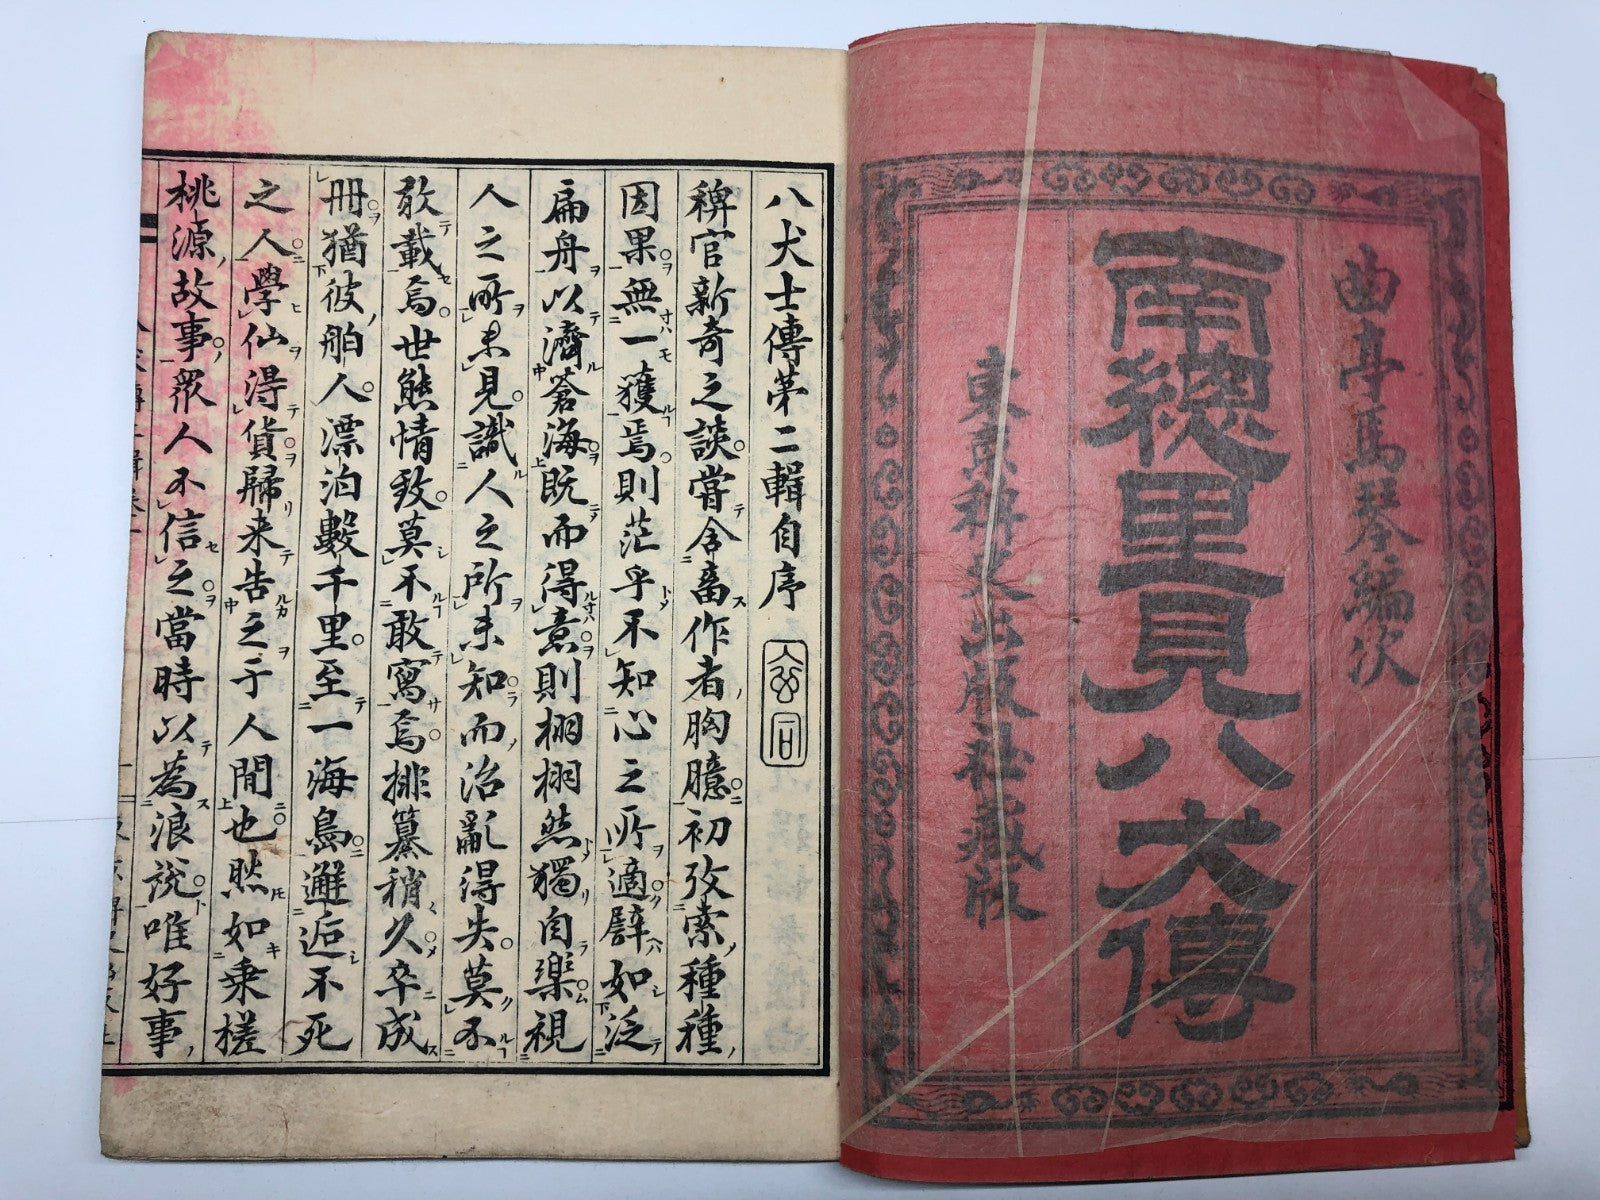 曲亭馬琴編次
南總里見八犬傳
東京稗史出版社藏版
八犬士傳第二輯自序
玄同
稗官新奇之談嘗含畜作者胸臆初攷索種種
因果無一獲焉則茫乎不知心之所適譬如泛
扁舟以濟蒼海既而得意則栩栩然獨自樂視
人之所未見識人之所未知而治亂得失莫不
敢載焉世態情致莫不敢寫焉排纂稍久卒成
冊猶彼舶人漂泊數千里至一海島邂逅不死
之人學仙得貨歸来告之于人間也然如乗槎
桃源故事衆人不信之當時以為浪說唯好事